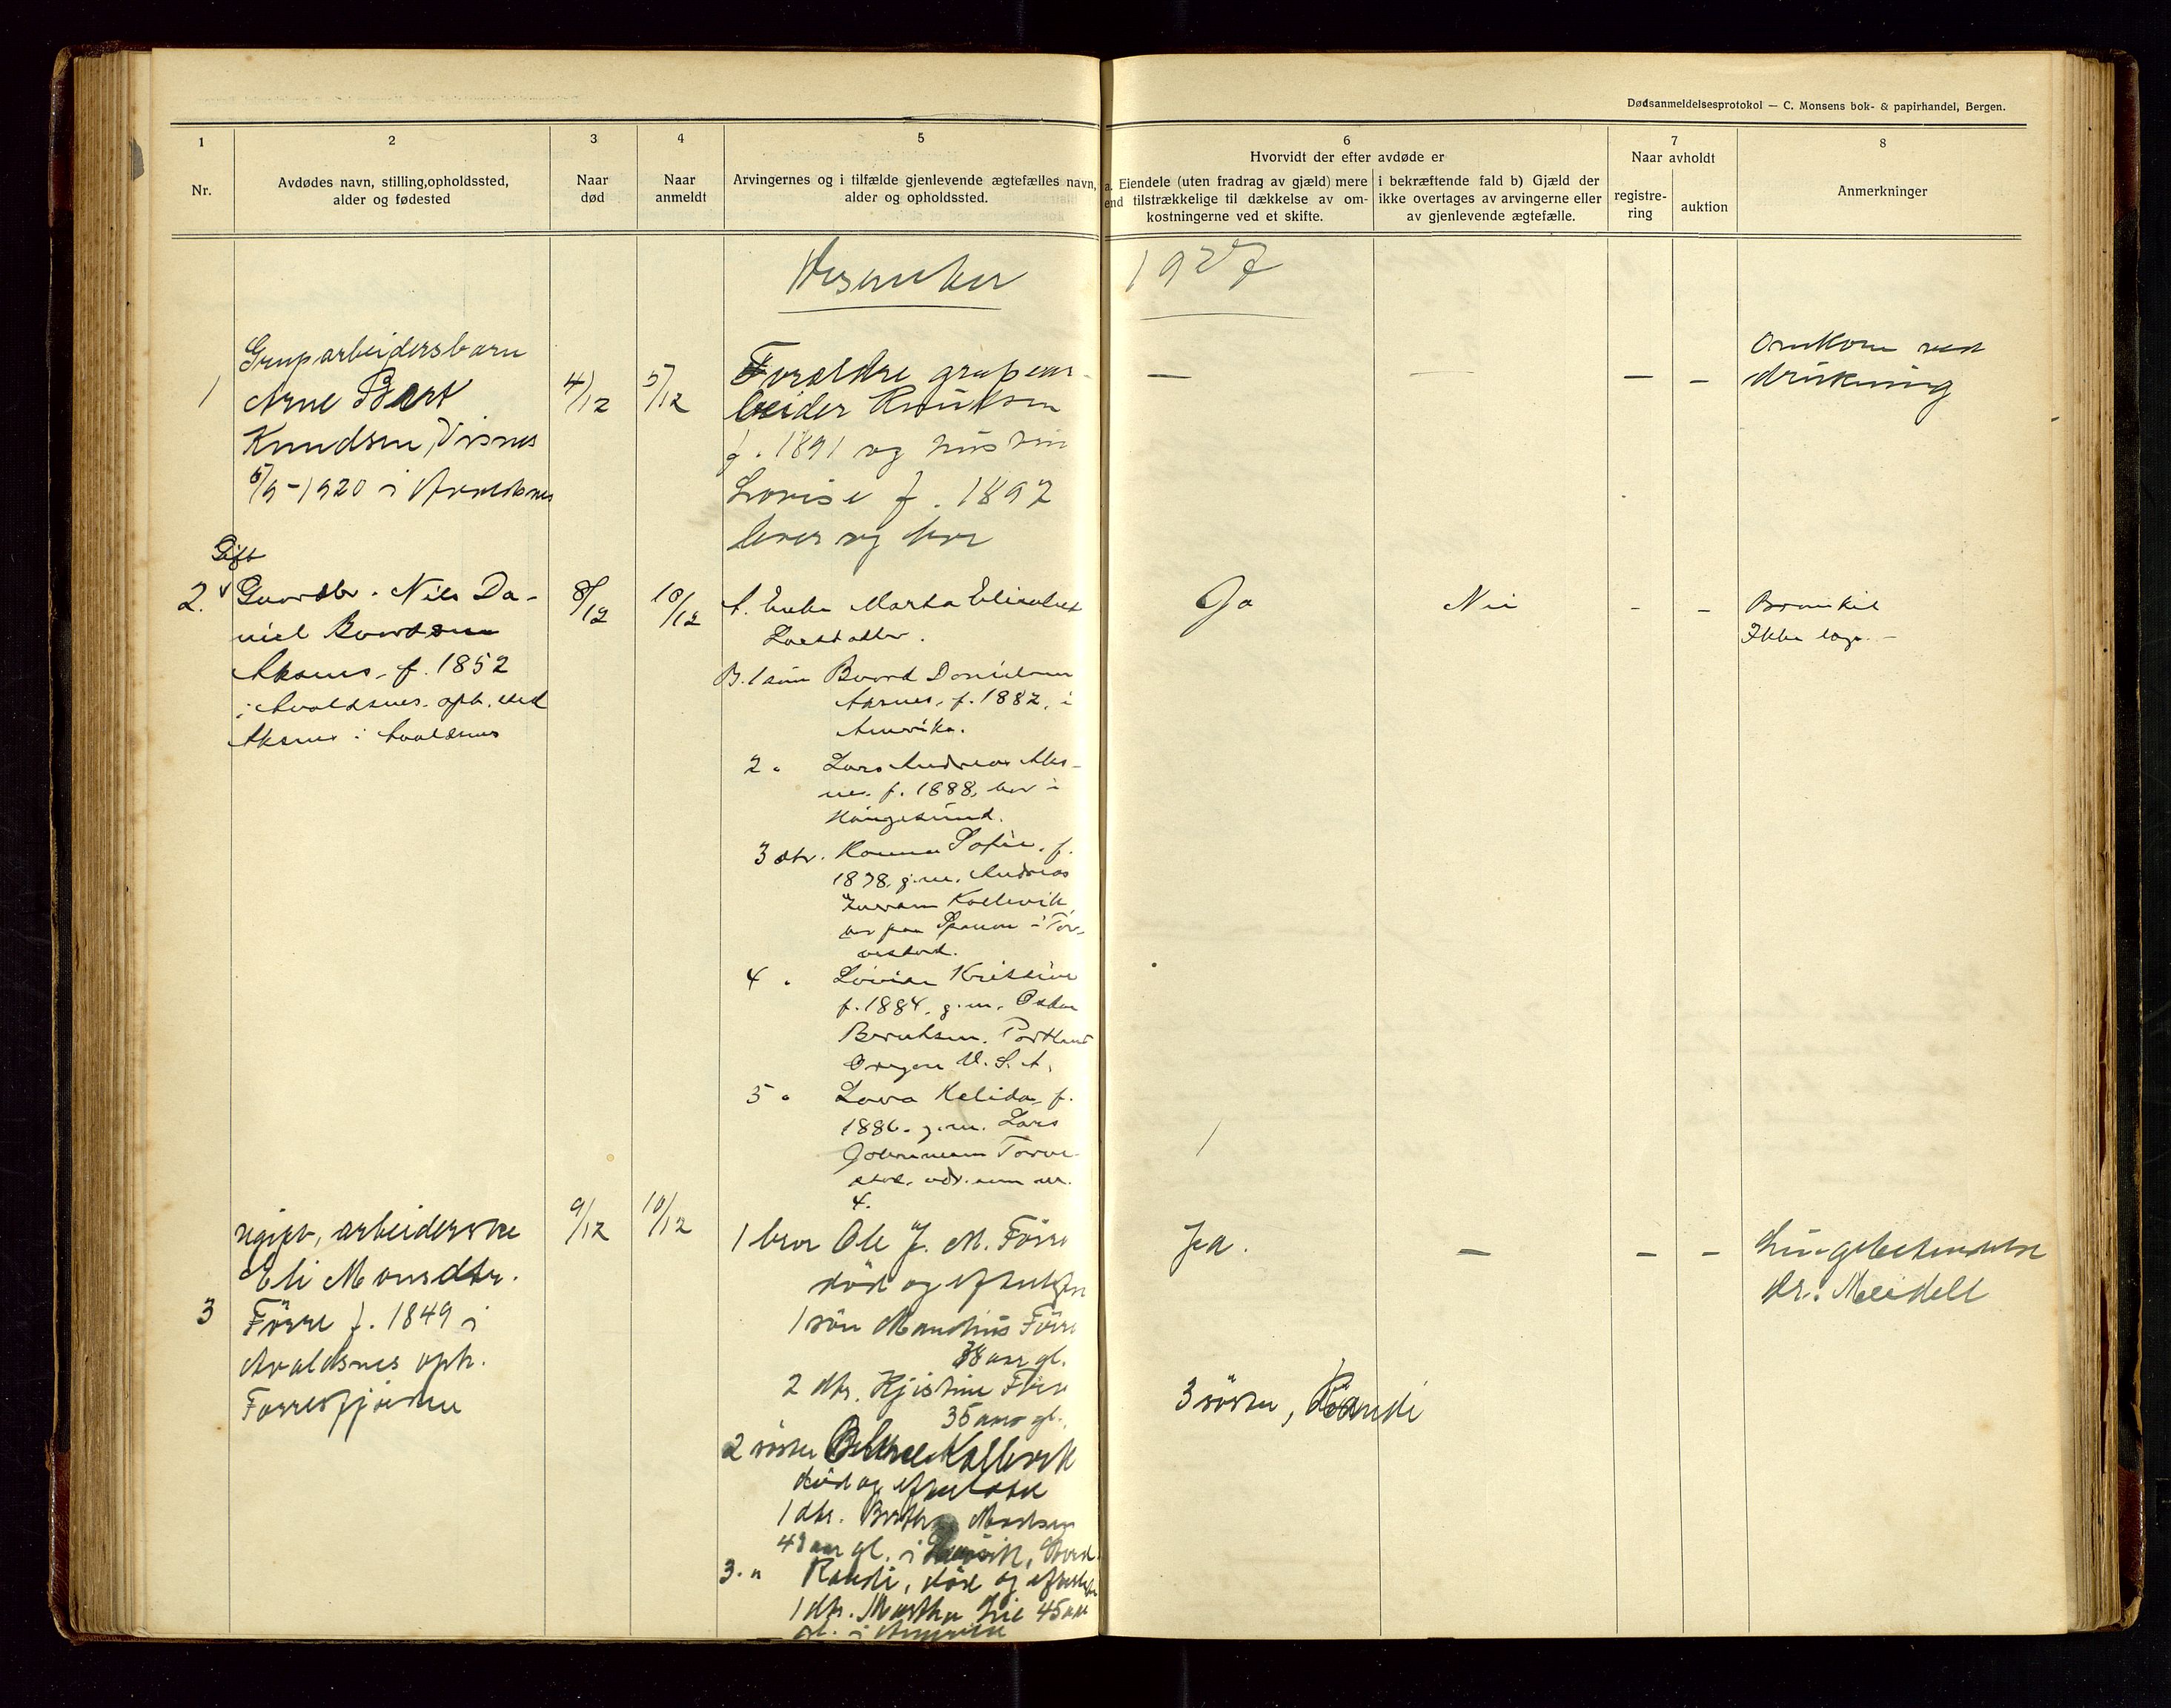 Dødsanmeldelsesprotokol — C. Monsens bok- & papirhandel, Bergen.
1
2
3
4
5
6
7
8
Nr.
Avdødes navn, stilling, opholdssted,
alder og fødested
Naar
død
Naar
anmeldt
Arvingernes og i tilfælde gjenlevende ægtefælles navn,
alder og opholdssted.
Hvorvidt der efter avdøde er
a. Eiendele (uten fradrag av gjæld) mere
end tilstrækkelige til dækkelse av om-
kostningerne ved et skifte.
i bekræftende fald b) Gjæld der
ikke overtages av arvingerne eller
av gjenlevende ægtefælle.
Naar avholdt
registre-
ring
auktion
Anmerkninger
Desember 1927
1
Gruparbeidersbarn
Arne Bert
Knudsen, Visnes
5/9-1920 i Avaldsnes
4/12
5/12
Forældre grupear-
beider Knutsen
f. 1891 og hustru
Lovise f. 1897
lever og bor
—
—
—
—
Omkom ved
drukning
Gift
2.
Gaardbr. Nils Da-
niel Baardsen
Aksnes, f. 1852
i Avaldsnes. oph. sted
Aksnes i Avaldsnes
8/12
10/12
A. Enke Marta Elisabet
Larsdatter.
B. 1 søn Baard Danielsen
Aksnes, f. 1882, i
Amerika.
2 " Lars Andreas Aks-
nes. f. 1888, bor i
Haugesund.
3 dtr. Hanna Sofie, f.
1878, g.m. Andreas
Kollevik,
bor paa Spanne i Tor-
vestad.
4 " Lovise Kristine
f. 1884, g.m. Oskar
Berntsen. Portland
Oregon U.S.A.
5 " Lava Helida, f.
1886. g.m. Lars
Torve-
stad. adr. som nr.
4.
Ja
Nei
-
-
Bronkit
Ikke læge -
3
Ugift, arbeiderske
Eli Monsdtr.
Førre f. 1849 i
Avaldsnes oph.
Førresfjorden
9/12
10/12
1 bror Ole J. M. Førre
død og efterladte
1 søn Manthius Førre
38 aar gl.
2 dtr. Kjistine Førre
35 aar gl.
2 søster Kallevik
død og efterladt
1 dtr. Berthe Madsen
49 aar gl. i
3. " Randi, død og efterladt
1 dtr. Martha Lie 45 aar
gl. i Amerika
Ja.
—
—
—
Lungebetendelse
dr. Meidell
3 søster, Randi